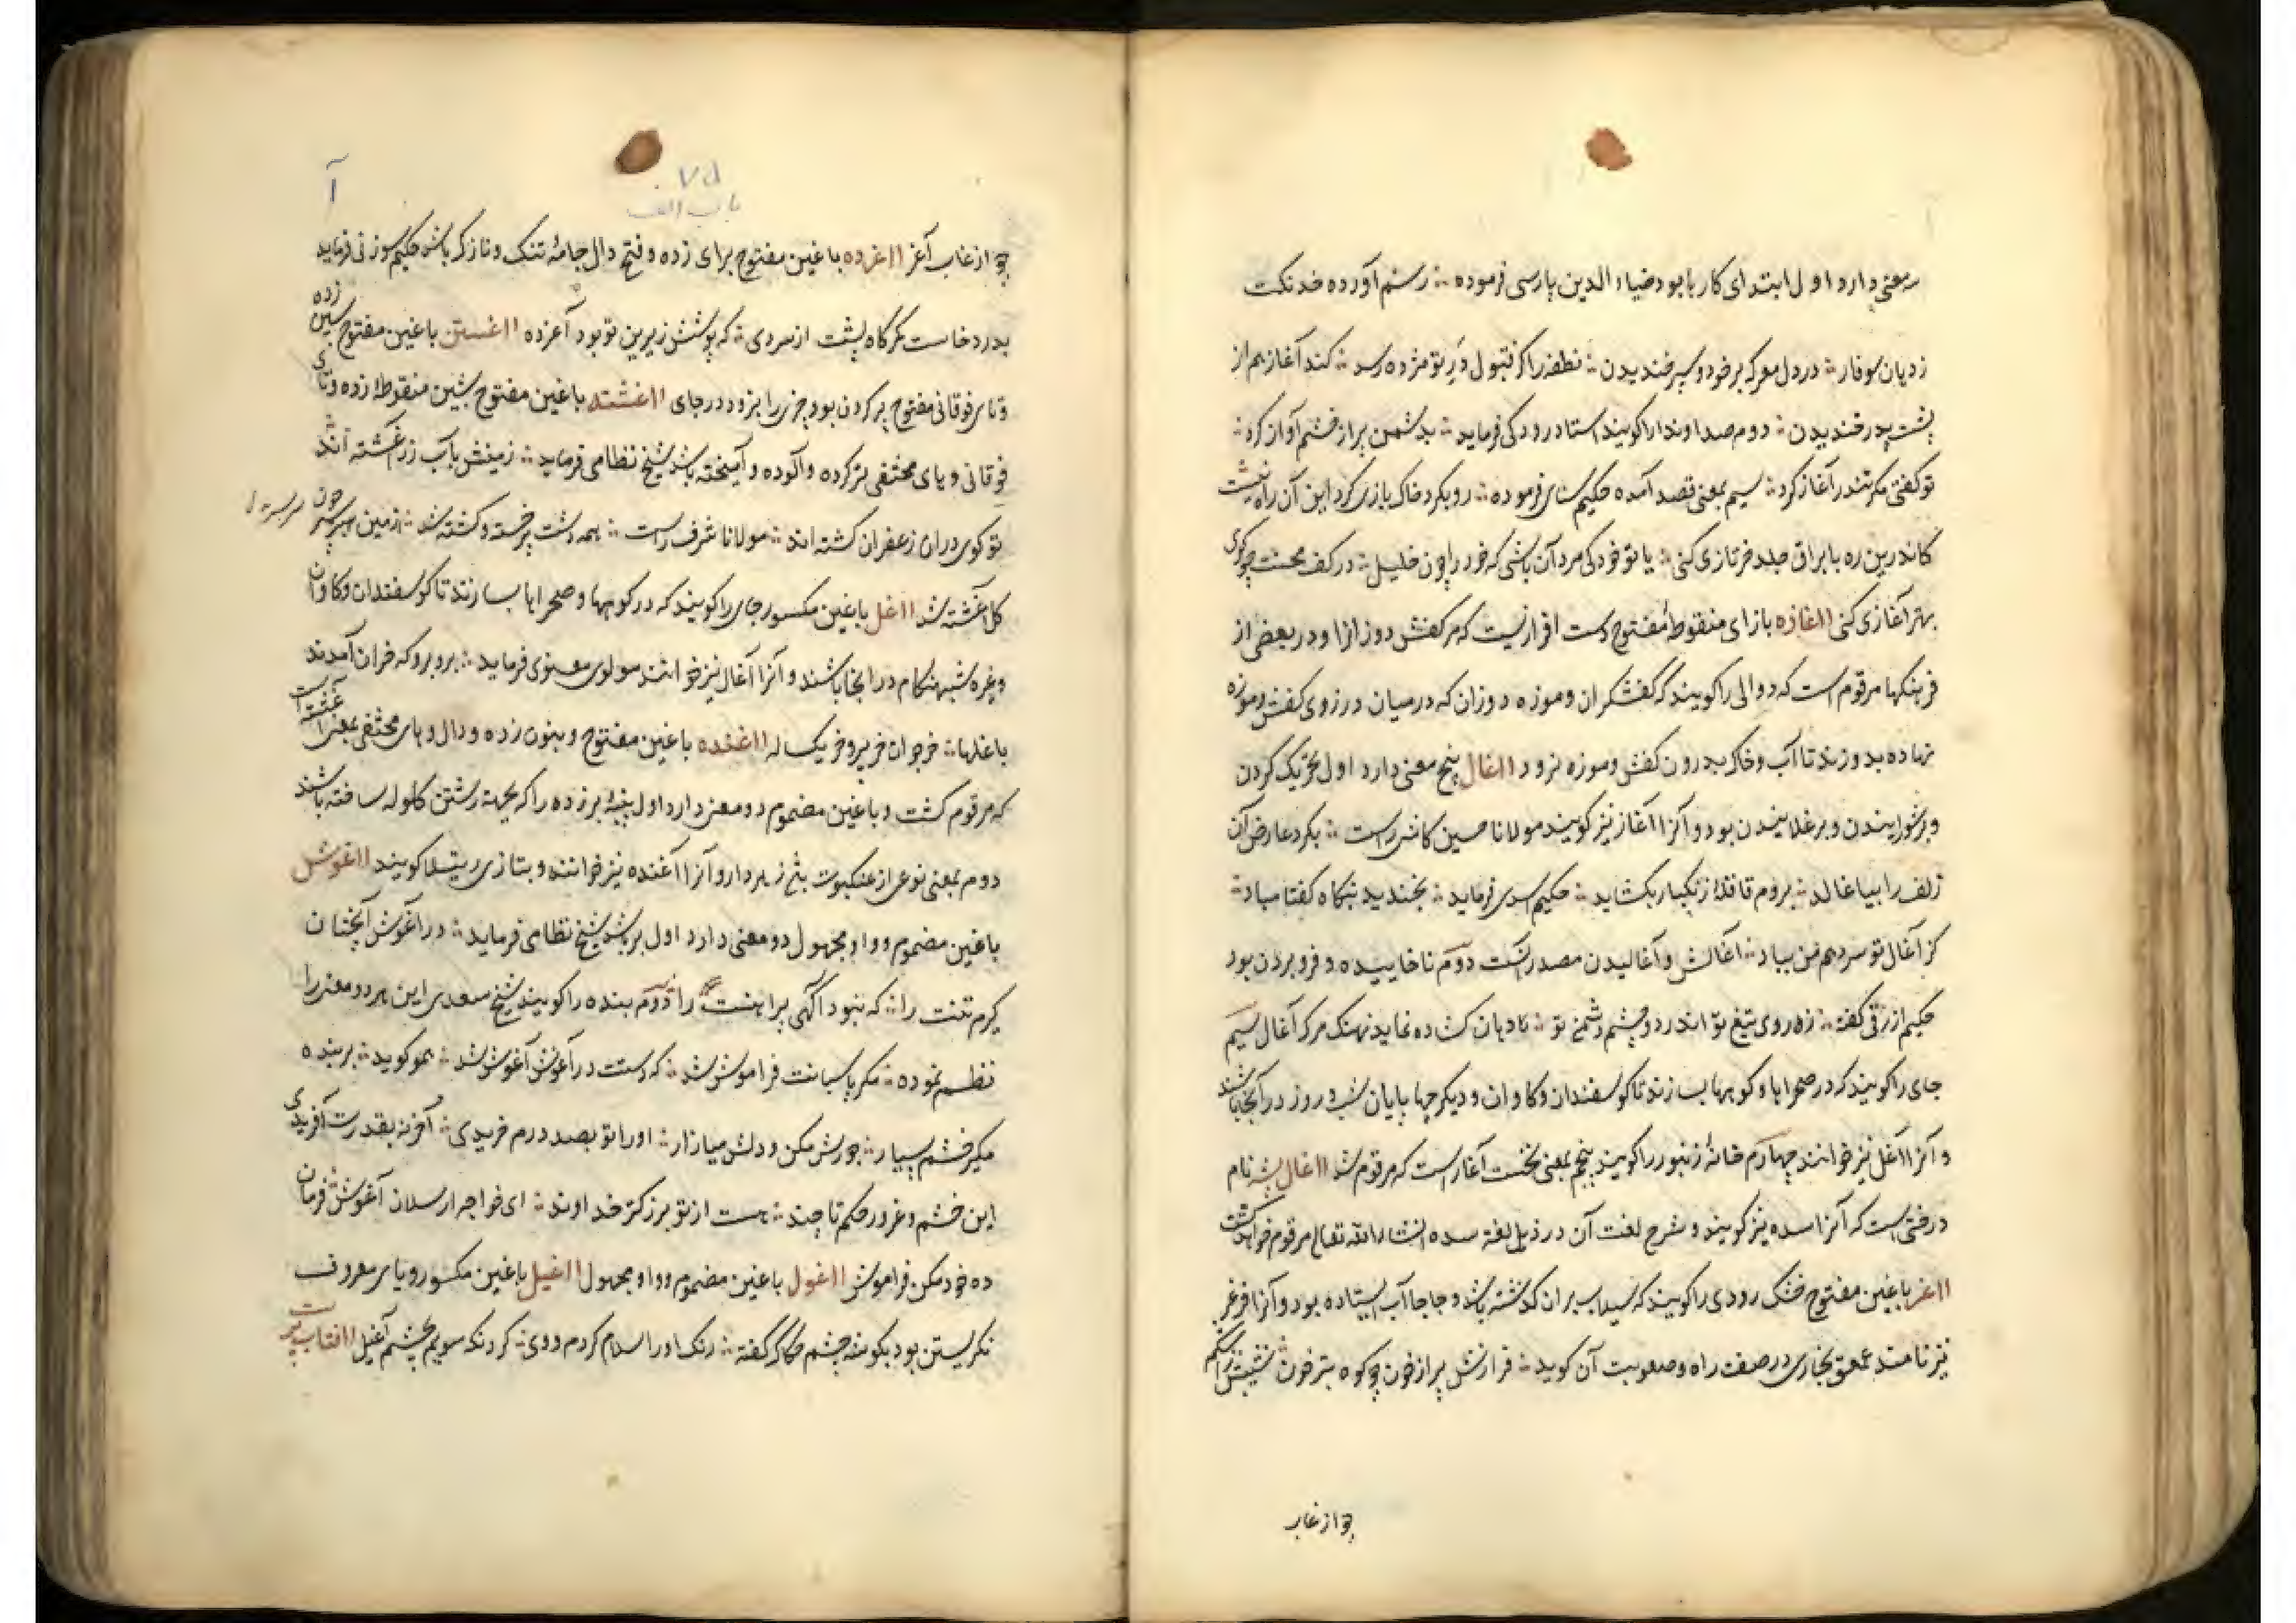 معنی دارد اول ابتدای کار با بود ضیاء الدین پارسی فرموده ∴ رستم آورده خدنکت
ز دهان سوفار ∴ در دل معرکه بر خود و سپر خندیدن ∴ نطفه را کر قبول در تو مژده رسد ∴ کند آغاز هم از
پشت پدر خندیدن ∴ دوم صدا و ندا را کویند استاد رودکی فرماید ∴ بدشمن بر از خشم آواز کرد ∴
تو کفتی مکر تندر آغاز کرد ∴ سیم بمعنی قصد آمده حکیم سنای فرموده ∴ رو بکرد خاک بازی کرد این آن راه نیست
کاندرین ره با براق جلد خر تازی کنی ∴ یا تو خود کی مرد آن باشی که خود را چون خلیل ∴ در کف محنت چو کوی
بهتر آغازی کنی ااغازه با زای منقوطهٔ مفتوح دست افزاریست که مر کفش دوزانرا و در بعضی از
فرهنکها مرقوم است که دوالی را کویند که کفشکران و موزه دوزان که در میان درز وی کفش و موزه
نهاده بدوزند تا آب و خاک بدرون کفش و موزه نرود ااغال پنج معنی دارد اول تحریک کردن
و برشورانیدن و برغلانیدن بود و آنرا آغاز نیز کویند مولانا حسین کاشی راست ∴ بکرد عارض آن
زلف را بیاغالد ∴ بروم قافلهٔ زنکبار بکشاید ∴ حکیم اسدی فرماید ∴ بخندید نبکاه کفتا مباد ∴
کز آغال تو سر دهم من بباد ∴ آغالش و آغالیدن مصدر است دوم ناخاییده و فرو بردن بود
حکیم ازرقی کفته ∴ زه روی تیغ تو اندر دو چشم دشمن تو ∴ دهان کشاده نماید نهنک مرک آغال سیم
جای را کویند که در صحراها و کوهها بسازند تا کوسفندان و کاوان و دیکر چهارپایان شب و روز در آنجا باشند
و آنرا آغل نیز خوانند چهارم خانهٔ زنبور را کویند پنجم بمعنی نخست آغار است که مرقوم شد ااغال پشه نام
درختی است که آنرا سده نیز کویند و شرح لغت آن در ذیل لغة سده انشاءالله تعالی مرقوم خواهد کشت
ااغر با غین مفتوح خشک رودی را کویند که سیلاب بر آن کذشته باشد و جا جا آب ایستاده بود و آنرا فرغر
نیز نامند عمعق بخاری در صفت راه و صعوبت آن کوید ∴ فرازش پر از خون چو کوه بترخون نشیبش ز اشکم
چو از غاب
۷۵
باب الف
آ
چو از غاب آغر ااغرده با غین مفتوح برای زده و فتح دال جامهٔ تنک و نازک باشد حکیم سوزنی فرماید
بدرد خاست کرکاه پشت از سردی ∴ که پوشش زیرین تو بود آغرده ااغستن با غین مفتوح سین زده
و تای فوقانی مفتوح پر کردن بود چیزی را بزور در جای ااغشته با غین مفتوح بشین منقوطهٔ زده و تای
فوقانی و های مختفی تر کرده و آلوده و آمیخته باشد شیخ نظامی فرماید ∴ زمینش بآب زر آغشته اند
تو کوی در آن زعفران کشته اند ∴ مولانا شرف راست ∴ همه دشت پر خسته و کشته شد ∴ زمین سربسر چون سربسر
کل آغشته شد ااغل با غین مکسور جای را کویند که در کوهها و صحراها بسازند تا کوسفندان و کاوان
و غیره شبهنکام در انجا باشند و آنرا آغال نیز خوانند مولوی معنوی فرماید ∴ برو برو که خران آمدند
باغلها ∴ خر جوان خر پیر و خر یک له ااغنده با غین مفتوح و بنون زده و دال و های مختفی بمعنی آغشته است
که مرقوم کشت و با غین مضموم دو معنی دارد اول پنبهٔ برزده را که بجهة رشتن کلوله ساخته باشند
دوم بمعنی نوعی از عنکبوت بود که زهر دارد و آنرا آغنده نیز خوانند و بتازی رتیلا کویند ااغوش
با غین مضموم و واو مجهول دو معنی دارد اول بر باشد شیخ نظامی فرماید ∴ در آغوش آنچنان
کیرم تنت را ∴ که نبود آکهی پیراهنت را دوم بنده را کویند شیخ سعدی این هر دو معنی را
نظم نموده ∴ مکر پاسبانت فراموش شد ∴ که دستت در آغوش آغوش شد ∴ همو کوید ∴ بر بنده
مکیر خشم بسیار ∴ جورش مکن و دلش میازار ∴ او را تو بصد درم خریدی ∴ آخر نه بقدرت آفریدی
این خشم و غرور حکم تا چند ∴ هست از تو بزرکتر خداوند ∴ ای خواجه ارسلان آغوش فرمان
ده خود مکن فراموش ااغول با غین مضموم و واو مجهول ااغیل با غین مکسور و یای معروف
نکریستن بود بکوشهٔ چشم حکاک کفته ∴ رنک او را سلام کردم و وی ∴ کرد نکه سویم بچشم آغیل ااقتاب پرست